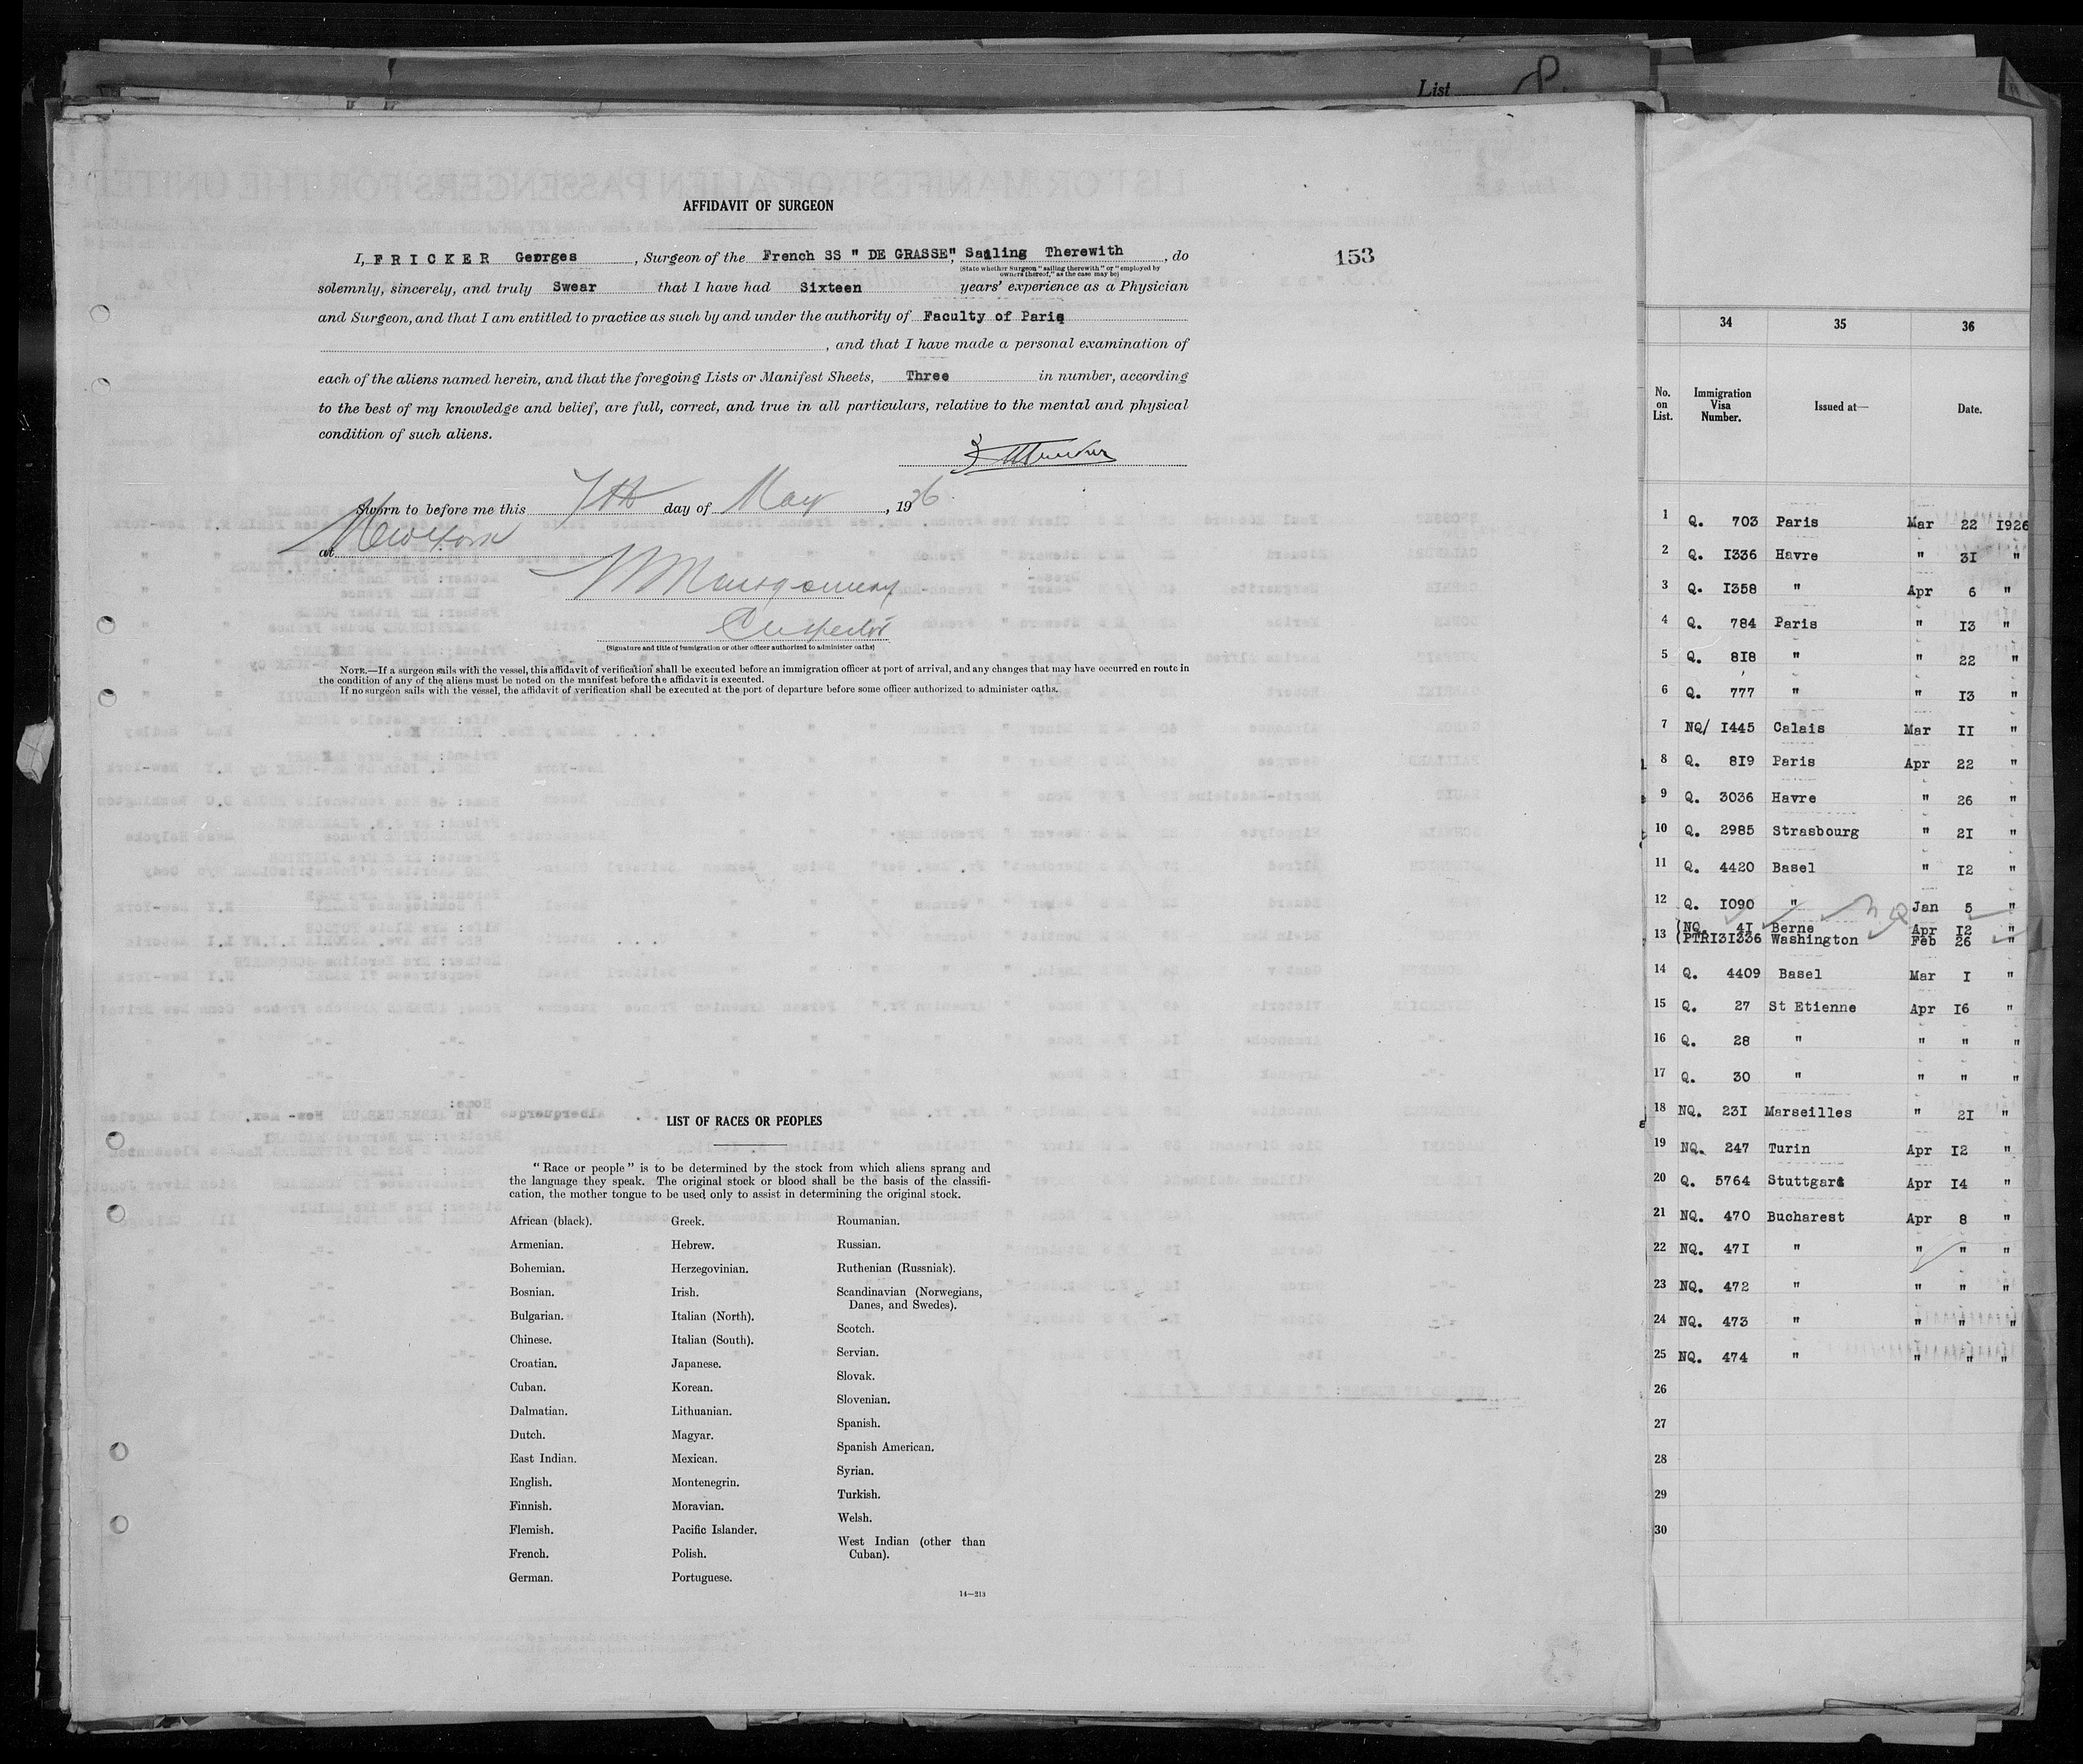 List
AFFIDAVIT OF SURGEON
I, FRICKER Georges, Surgeon of the French SS " DE GRASSE", Sailing Therewith, do
153
(State whether Surgeon "sailing therewith" or "employed by
owners thereof," as the case may be)
solemnly, sincerely, and truly Swear that I have had Sixteen years' experience as a Physician
and Surgeon, and that I am entitled to practice as such by and under the authority of Faculty of Paris
, and that I have made a personal examination of
each of the aliens named herein, and that the foregoing Lists or Manifest Sheets, Three in number, according
to the best of my knowledge and belief, are full, correct, and true in all particulars, relative to the mental and physical
condition of such aliens.
Sworn to before me this 7th day of May, 1926
at New York
Montgomery
Inspector
(Signature and title of immigration or other officer authorized to administer oaths)
NOTE.—If a surgeon sails with the vessel, this affidavit of verification shall be executed before an immigration officer at port of arrival, and any changes that may have occurred en route in
the condition of any of the aliens must be noted on the manifest before the affidavit is executed.
If no surgeon sails with the vessel, the affidavit of verification shall be executed at the port of departure before some officer authorized to administer oaths.
LIST OF RACES OR PEOPLES
"Race or people" is to be determined by the stock from which aliens sprang and
the language they speak. The original stock or blood shall be the basis of the classifi-
cation, the mother tongue to be used only to assist in determining the original stock.
African (black).
Armenian.
Bohemian.
Bosnian.
Bulgarian.
Chinese.
Croatian.
Cuban.
Dalmatian.
Dutch.
East Indian.
English.
Finnish.
Flemish.
French.
German.
Greek.
Hebrew.
Herzegovinian.
Irish.
Italian (North).
Italian (South).
Japanese.
Korean.
Lithuanian.
Magyar.
Mexican.
Montenegrin.
Moravian.
Pacific Islander.
Polish.
Portuguese.
Roumanian.
Russian.
Ruthenian (Russniak).
Scandinavian (Norwegians,
Danes, and Swedes).
Scotch.
Servian.
Slovak.
Slovenian.
Spanish.
Spanish American.
Syrian.
Turkish.
Welsh.
West Indian (other than
Cuban).
14—213
34 35 36
No. on List. Immigration Visa Number. Issued at— Date.
1 Q. 703 Paris Mar 22 1926
2 Q. 1336 Havre " 31 "
3 Q. 1358 " Apr 6 "
4 Q. 784 Paris " 13 "
5 Q. 818 " " 22 "
6 Q. 777 " " 13 "
7 NQ/ 1445 Calais Mar 11 "
8 Q. 819 Paris Apr 22 "
9 Q. 3036 Havre " 26 "
10 Q. 2985 Strasbourg " 21 "
11 Q. 4420 Basel " 12 "
12 Q. 1090 " Jan 5 "
13 (NQ. 41 Berne Apr 12 "
(PTR131336 Washington Feb 26 "
14 Q. 4409 Basel Mar 1 "
15 Q. 27 St Etienne Apr 16 "
16 Q. 28 " " " "
17 Q. 30 " " " "
18 NQ. 231 Marseilles " 21 "
19 NQ. 247 Turin Apr 12 "
20 Q. 5764 Stuttgart Apr 14 "
21 NQ. 470 Bucharest Apr 8 "
22 NQ. 471 " " " "
23 NQ. 472 " " " "
24 NQ. 473 " " " "
25 NQ. 474 " " " "
26
27
28
29
30